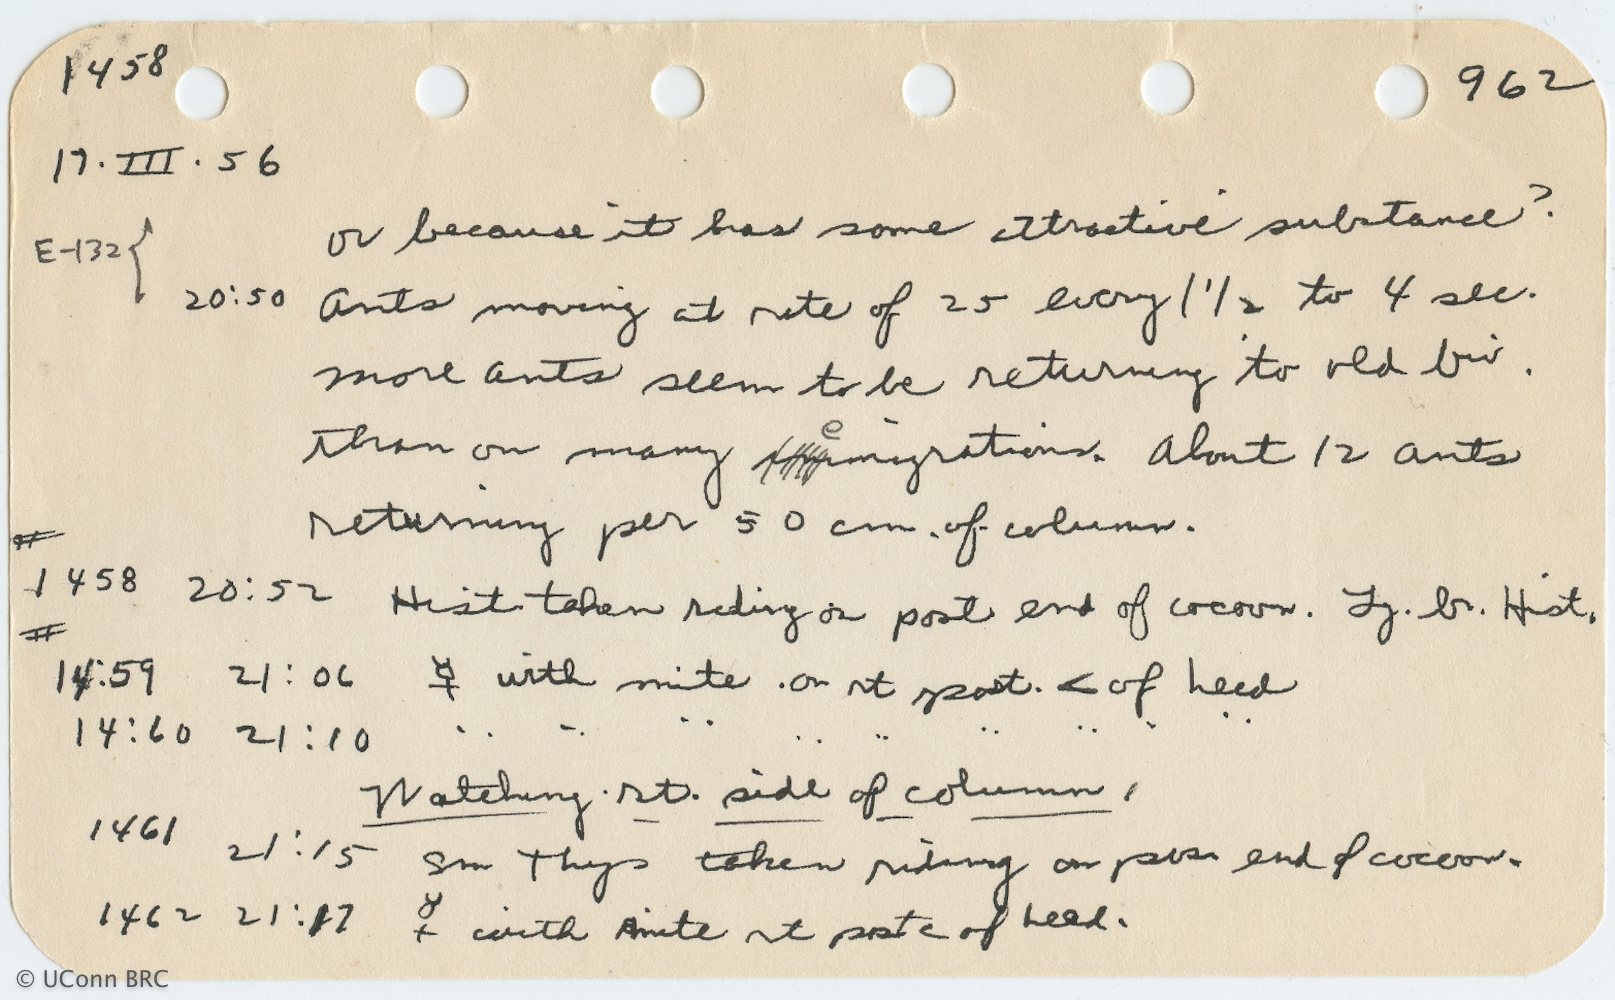 1458 962
17.III.56
E-132{ or because it has some attractive substance?
20:50 Ants moving at rate of 25 every 1 1/2 to 4 sec.
more ants seem to be returning to old biv.
than on many emigrations. About 12 ants
returning per 50 cm. of column.
#
1458 20:52 Hist taken riding on post end of cocoon. Lg. br. Hist.
#
14:59 21:06 ☿ with mite on rt post. < of head
14:60 21:10 " " " " " " " " "
Watching rt. side of column,
1461
21:15 Sm Thys taken riding on post end of cocoon.
1462 21:17 ☿ with mite rt post < of head.
© UConn BRC